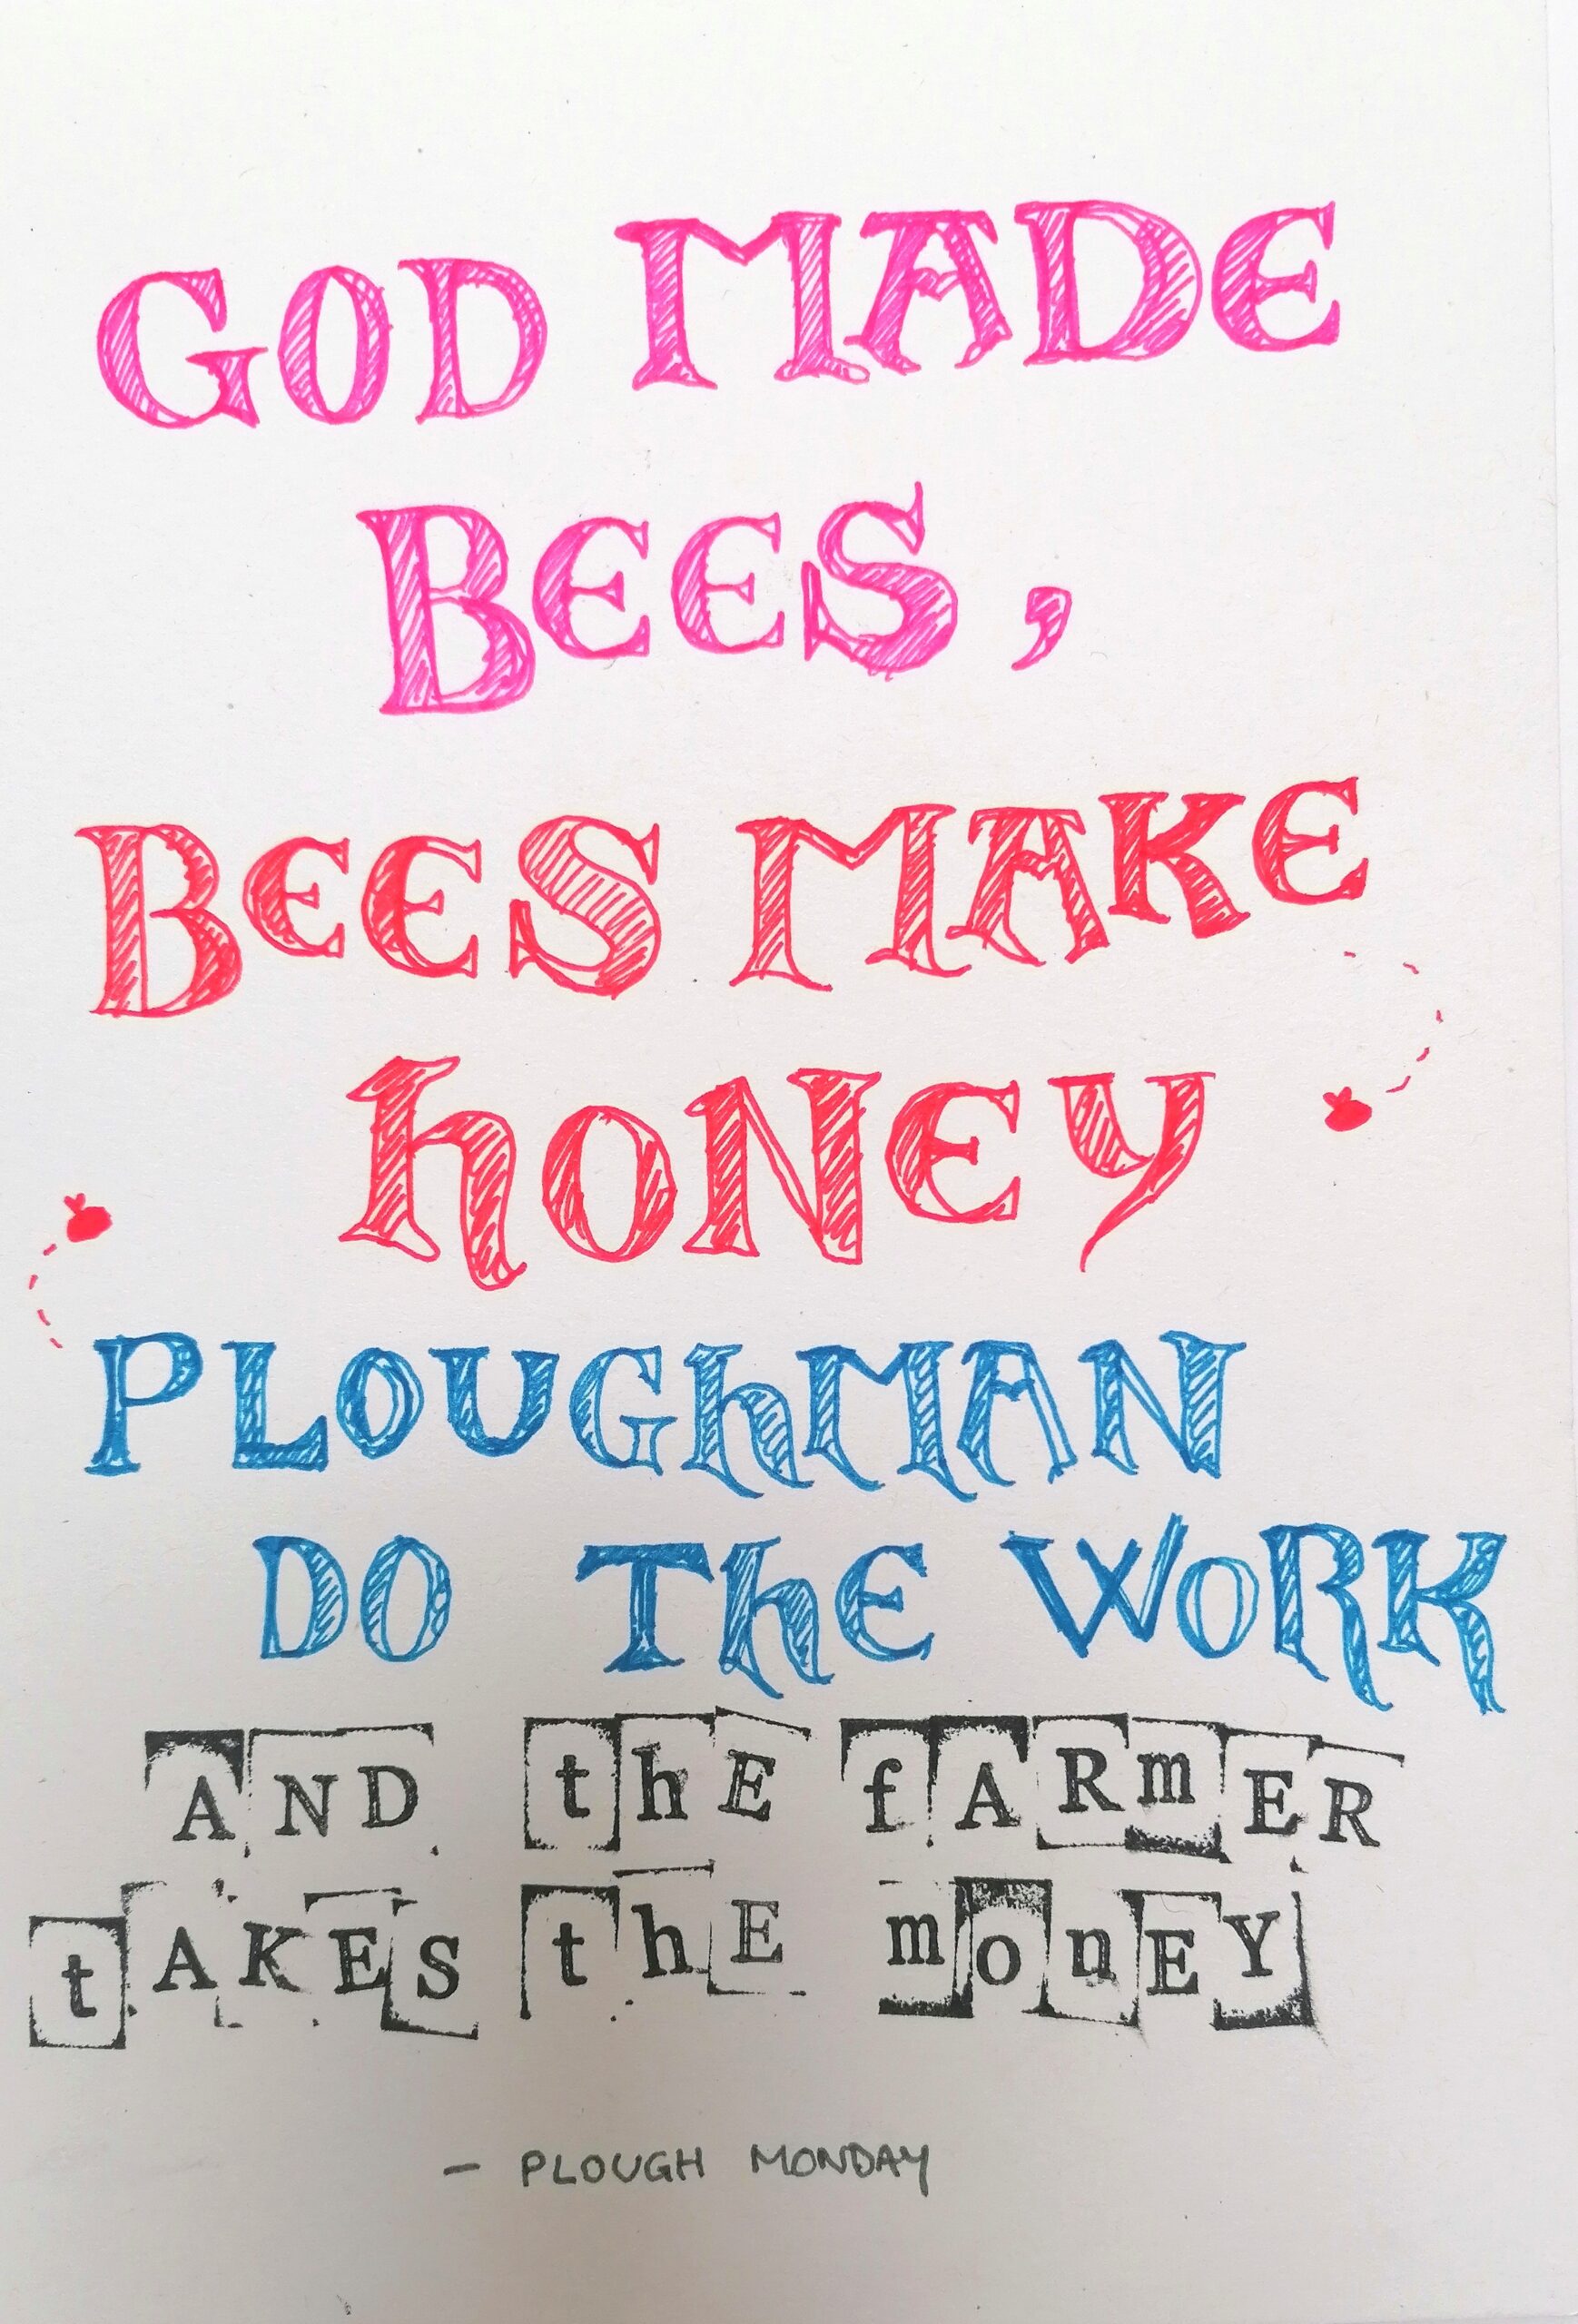 GOD MADE
BEES,
BEES MAKE
hONEY
PLOUGhMAN
DO ThE WORK
AND thE fARmER
tAKES thE monEY
- PLOUGH MONDAY